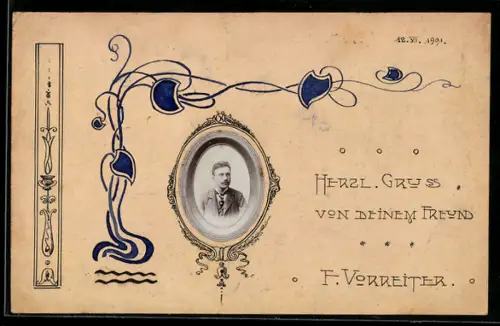 12. VI. 1901.
HERZL. GRUSS
VON DEINEM FREUND
F. VORREITER.